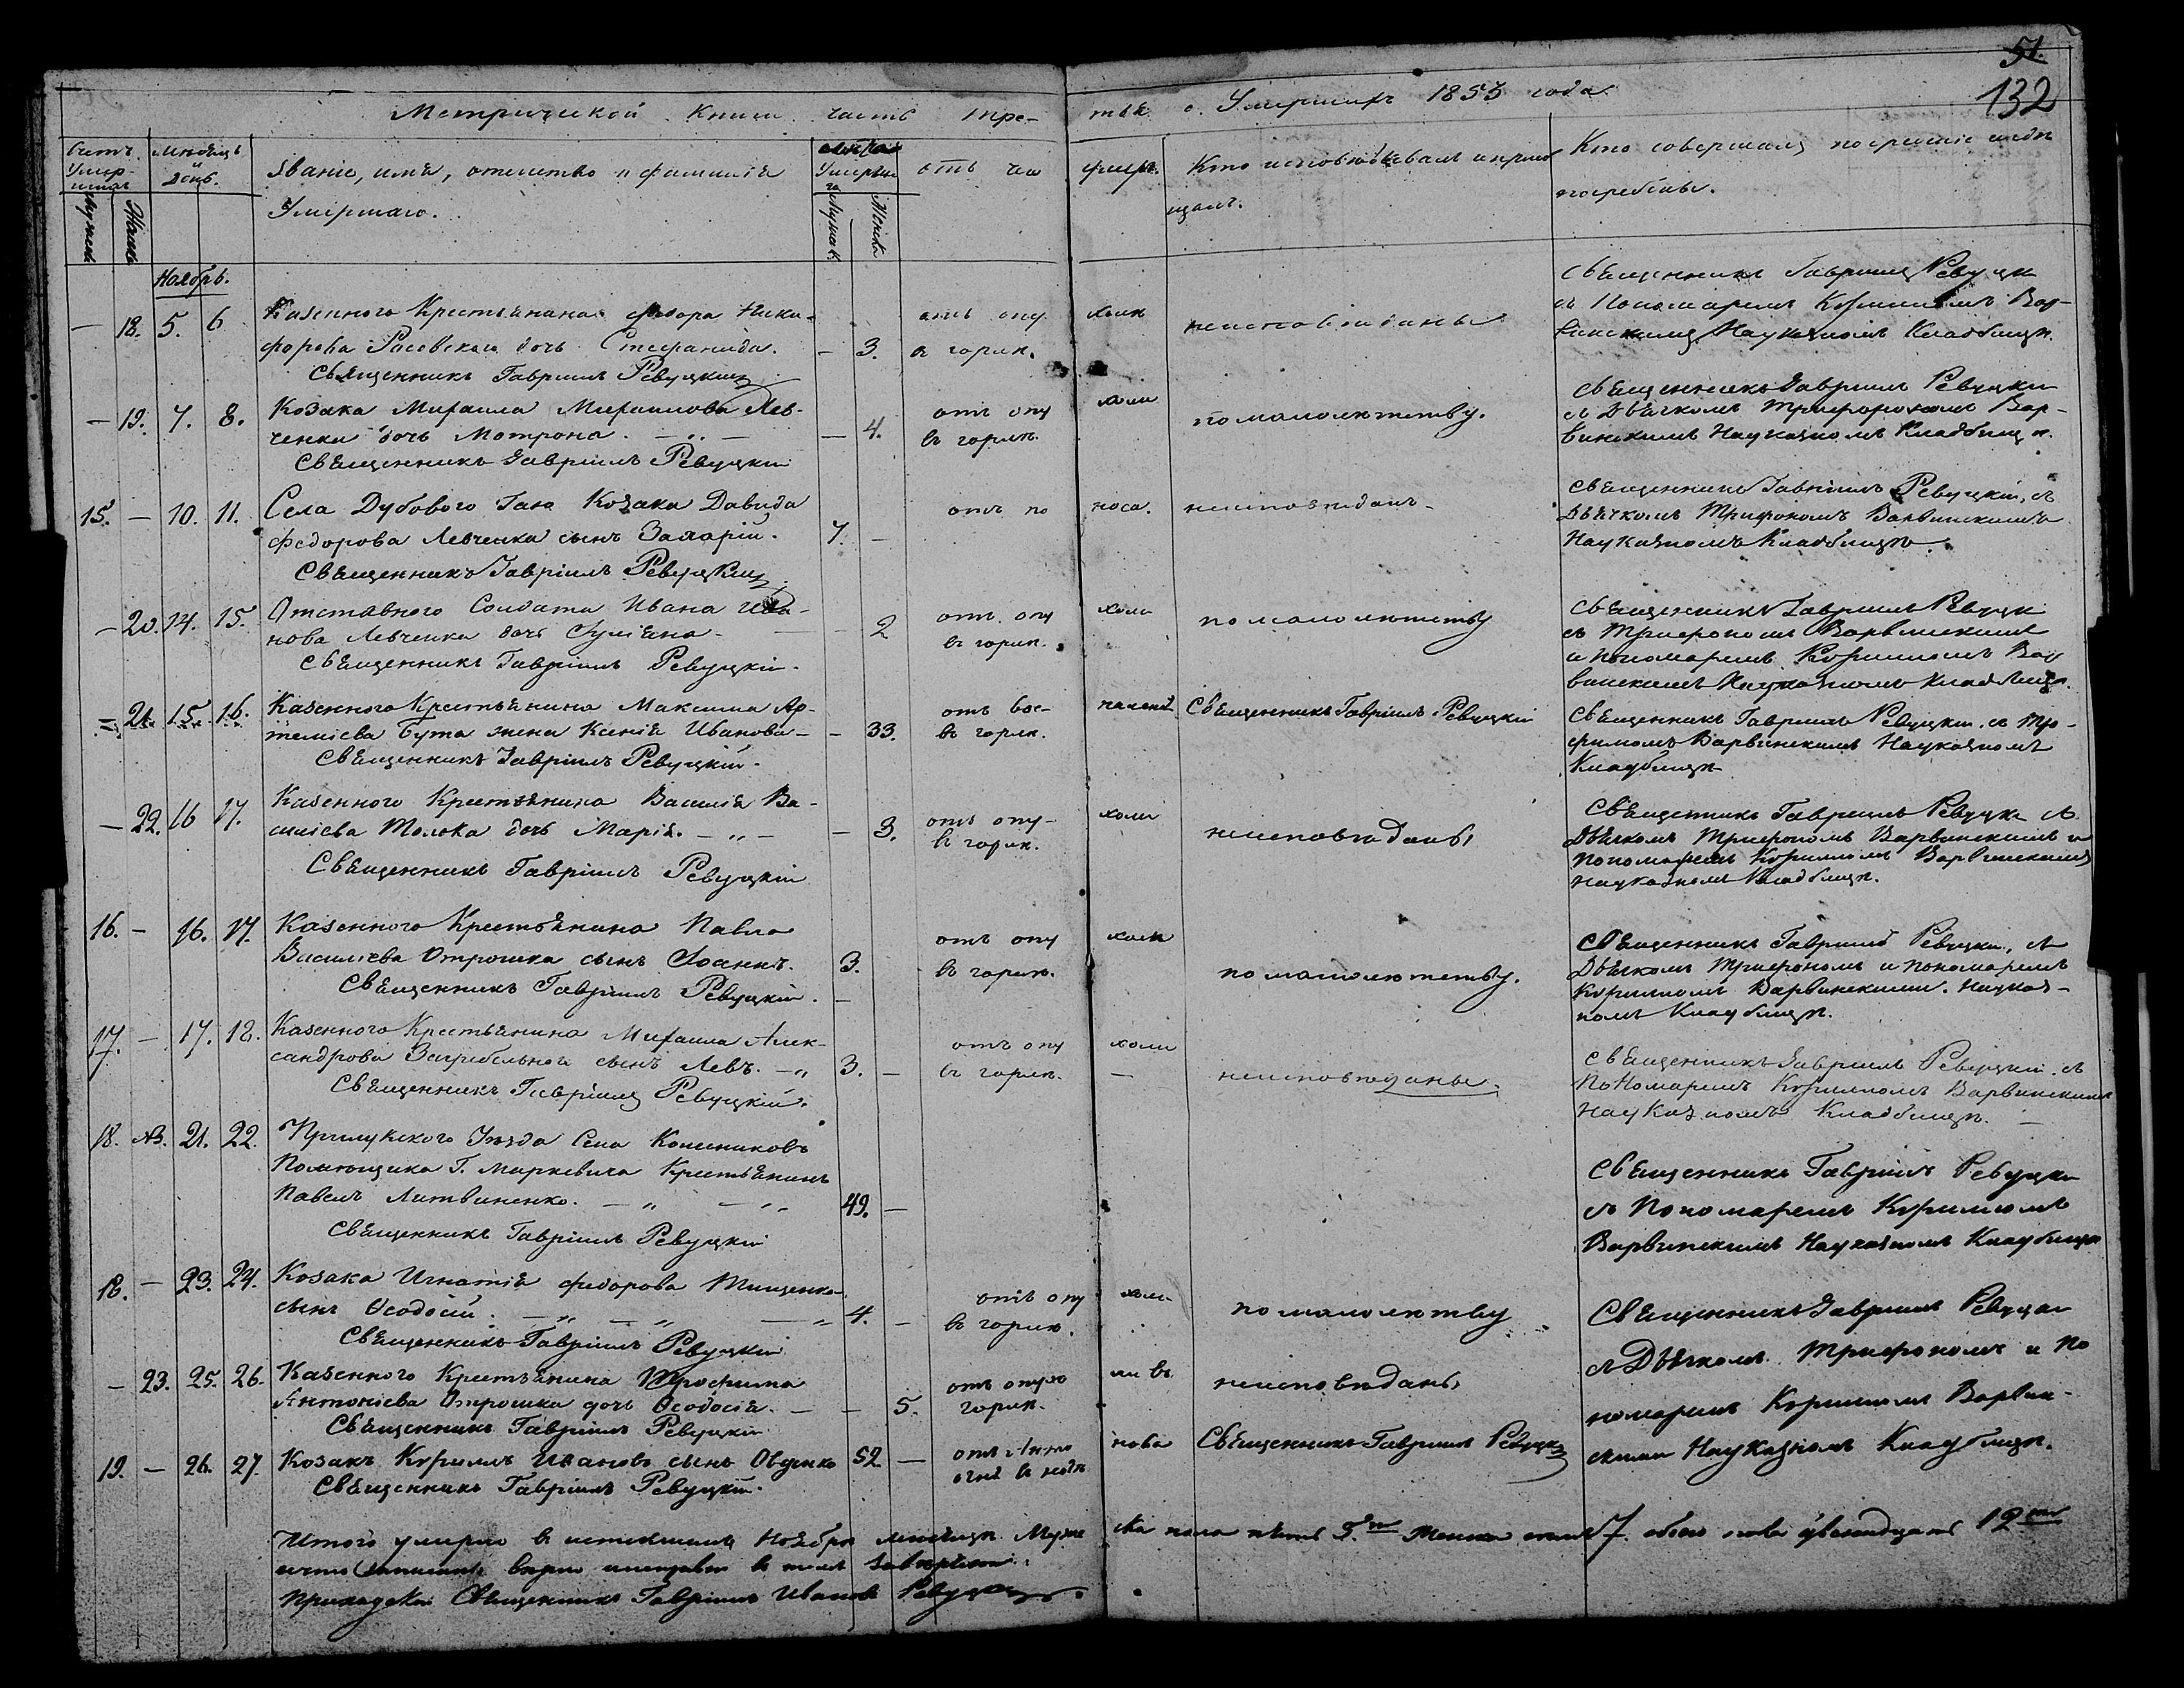 51.
132
Метрической Книги часть тре-
тья о Умершихъ 1853 года.
Счетъ Умер-шихъ
Мѣсяцъ и день.
Званіе, имя, отчество и фамилія
Умершаго.
Умершаго
отъ чего
умеръ.
Кто исповѣдывалъ и пріоб
щалъ.
Кто совершалъ погребеніе и гдѣ
погребены.
Мужеск
Женск
Мужеск.
Женск.
Ноябрь.
— 18. 5. 6
Казенного Крестьянина Федора Ники-
форова Расовского дочь Стефанида. — 3.
Священникъ Гавріилъ Ревуцкій
отъ опу холи
въ горлѣ.
неисповѣданы
Священникъ Гавріилъ Ревуцки
съ Пономаремъ Кориліомъ Вар-
винскимъ На указномъ Кладбищѣ.
— 19. 7. 8.
Козака Михаила Михаилова Лев-
ченка дочь Мотрона. — „ — — 4.
Священникъ Гавріилъ Ревуцкій
отъ опу холи
въ горлѣ.
по малолѣтству.
Священникъ Гавріилъ Ревуцки
съ Дьячкомъ Трифономъ Вар-
винскимъ На указномъ Кладбищѣ.
15. — 10. 11.
Села Дубового Гаю Козака Давида
Федорова Левченка сынъ Захарій. 7. —
Священникъ Гавріилъ Ревуцкій
отъ по носа.
неисповѣданъ
Священникъ Гавріилъ Ревуцкій, съ
Дьячкомъ Трифономъ Варвинскимъ
На указномъ Кладбищѣ.
— 20. 14. 15.
Отставного Солдата Ивана Ива-
нова Левченка дочь Іуліяна — — 2
Священникъ Гавріилъ Ревуцкій.
отъ опу холи
въ горлѣ.
по малолѣтству
Священникъ Гавріилъ Ревуцк
съ Трифономъ Варвинскимъ
и пономаремъ Кориліомъ Вар
винскимъ На указномъ кладбищѣ.
— 21. 15. 16.
Казенного Крестьянина Максима Ар-
теміева Бута жена Ксенія Иванова — — 33.
Священникъ Гавріилъ Ревуцкій.
отъ вос- паленія
въ горлѣ.
Священникъ Гавріилъ Ревуцкій
Священникъ Гавріилъ Ревуцкій. съ Три-
фономъ Варвинскимъ На указномъ
Кладбищѣ
— 22. 16 17.
Казенного Крестьянина Василія Ва-
силіева Толока дочь Марія. — „ — — 3.
Священникъ Гавріилъ Ревуцкій
отъ опу- холи
въ горлѣ.
неисповѣданы
Священникъ Гавріилъ Ревуцк съ
Дьячкомъ Трифономъ Варвинскимъ и
пономаремъ Кориліомъ Варвинскимъ
На указномъ Кладбищѣ.
16. — 16. 17.
Казенного Крестьянина Павла
Василіева Отрошка сынъ Іоаннъ. 3.
Священникъ Гавріилъ Ревуцкій. —
отъ опу холи
въ горлѣ.
по малолѣтству.
Священникъ Гавріилъ Ревуцки, съ
Дьячкомъ Трифономъ и пономаремъ
Кориліомъ Варвинскими. На указ-
номъ Кладбищѣ.
17. — 17. 18.
Казенного Крестьянина Михаила Алек-
сандрова Загребельной сынъ Левъ. — „ 3. —
Священникъ Гавріилъ Ревуцкій.
отъ опу холи
въ горлѣ. —
неисповѣданы.
Священникъ Гавріилъ Ревуцкій съ
Пономаремъ Кориліомъ Варвинскимъ
На Указномъ Кладбищѣ. —
18. 21. 22.
Прилукского Уѣзда Села Колесниковъ
Помѣщика Г. Маркевича Крестьянинъ
Павелъ Литвиненко. — „ — „ 49. —
Священникъ Гавріилъ Ревуцкій
Священникъ Гавріилъ Ревуцки
съ Пономаремъ Кориліомъ
Варвинскимъ На указномъ Кладбищѣ
18. — 23. 24.
Козака Игнатія Федорова Тищенка
сынъ Ѳеодосій. — „ — „ — „ 4. —
Священникъ Гавріилъ Ревуцкій
отъ опу холи
въ горлѣ.
по малолѣтву
Священникъ Гавріилъ Ревуцки
съ Дьячкомъ Трифономъ и По
номаремъ Кориліомъ Варвин-
скими На указномъ Кладбищѣ.
— 23. 25. 26.
Казенного Крестьянина Трофима
Антоніева Отрошка дочь Ѳеодосія. — — 5.
Священникъ Гавріилъ Ревуцкій
отъ опухо ли въ
горлѣ.
неисповѣданы
19. — 26. 27.
Козакъ Кирилъ Ивановъ сынъ Овденко 52 —
Священникъ Гавріилъ Ревуцкій.
отъ Анто нова
огня въ
Священникъ Гавріилъ Ревуцкій
Итого умерло въ истекшемъ Ноябрѣ мѣсяцѣ Муже ска пола пять 5. Женска семь 7. обоего пола двенадцать 12
въ томъ
приходской Священникъ Гавріилъ Ивановъ Ревуцкій.